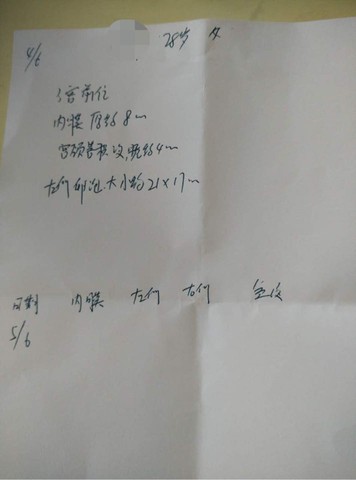 4/6 28岁 女
子宫前位
内膜厚约8mm
宫颈普积液,宽约4mm
左侧卵泡大小约21×17mm
日期 内膜 左侧 右侧
5/6